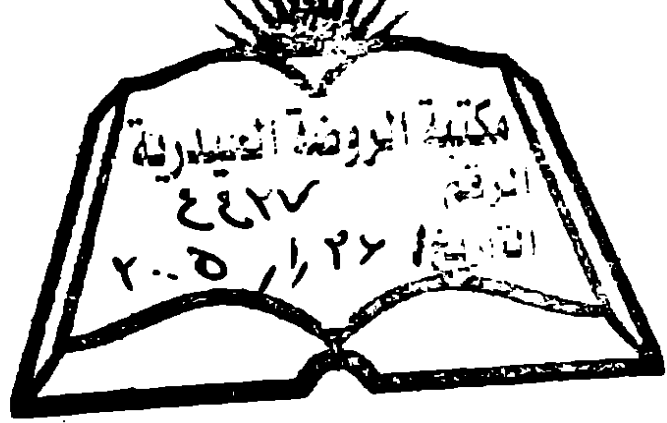 مكتبة الروضة الحيدرية
الرقم ٤٤٢٧
التاريخ ٢٦ / ١ / ٢٠٠٥